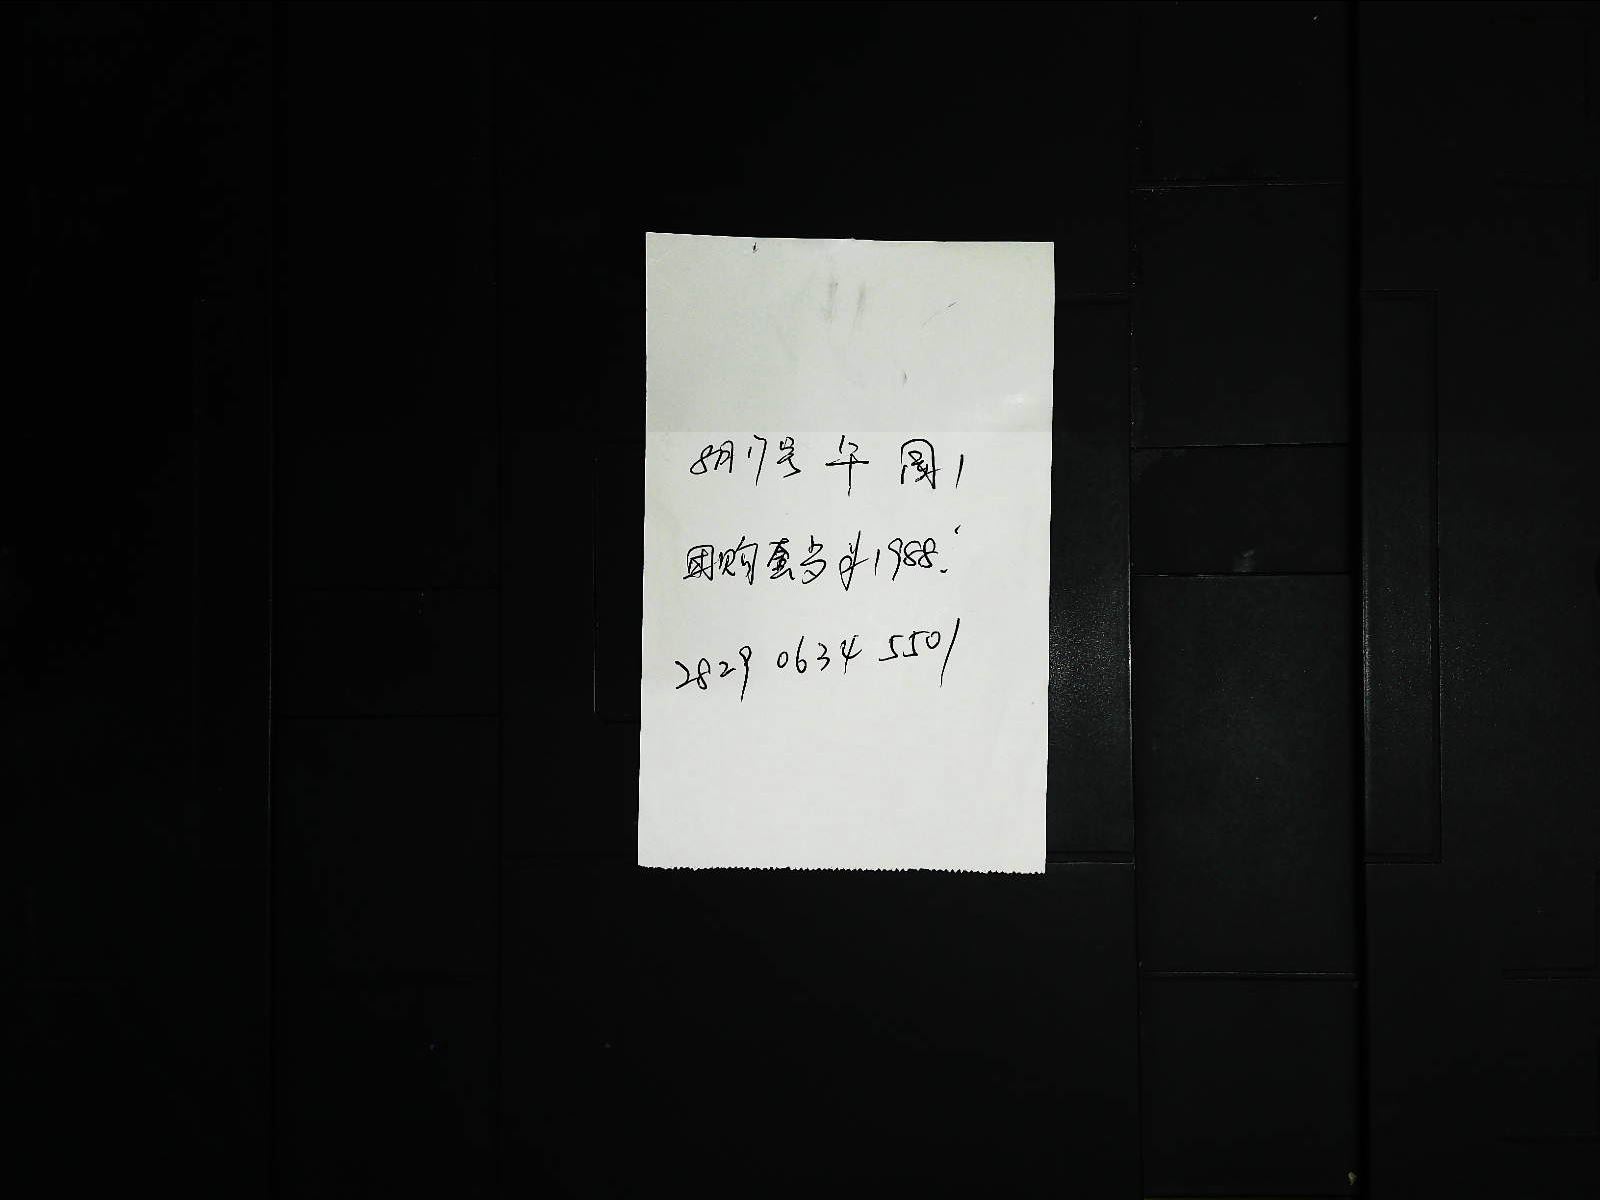 8月17号 午 国1
团购套 1988.
2829 0634 5501